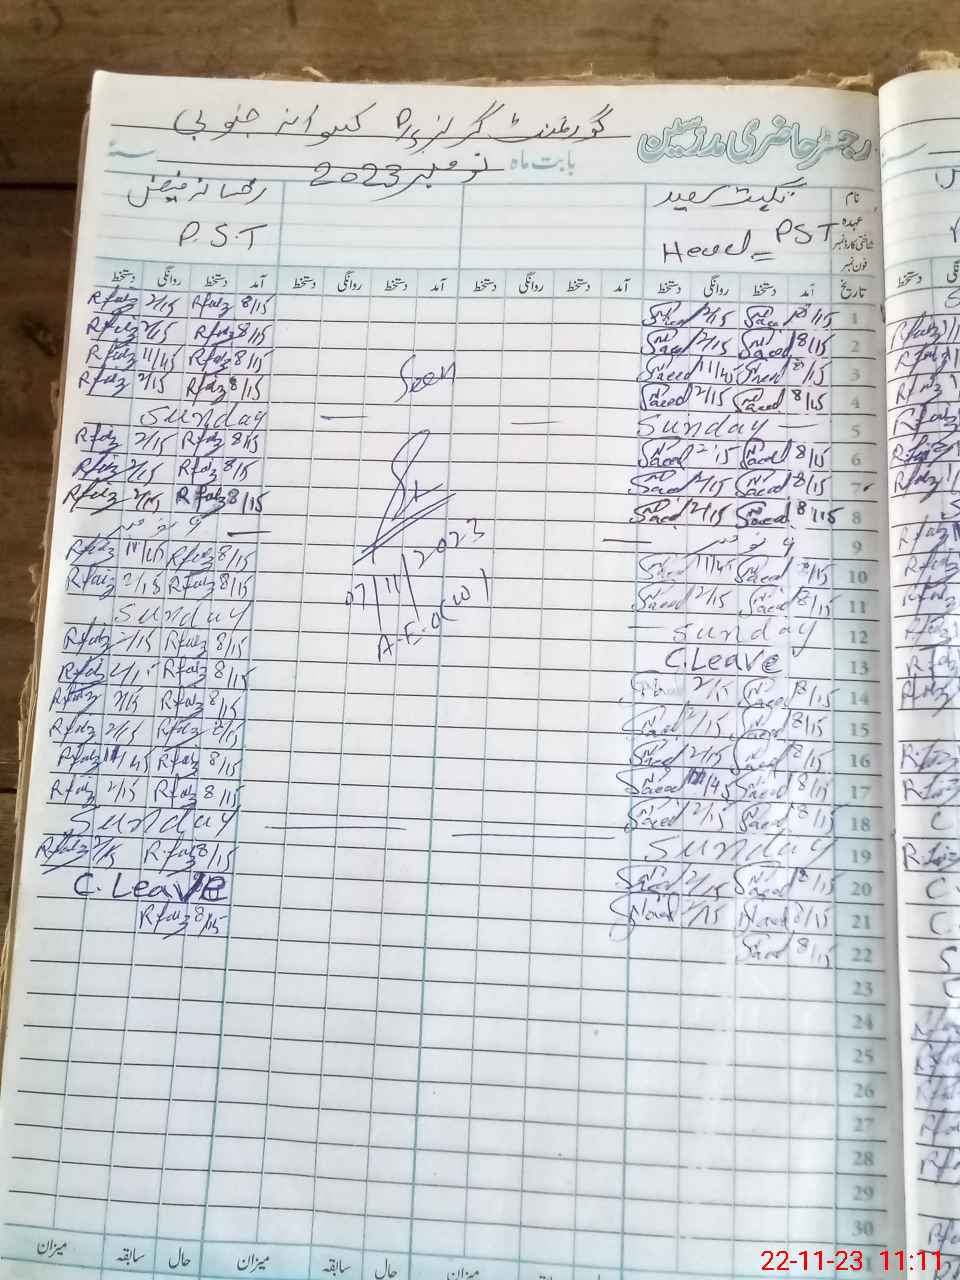 رجسٹر حاضری مدرسین گورنمنٹ گرلز
بابت ماہ نومبر 2023 سنہ
نام نگہت سعید رخسانہ فیض
عہدہ PST P.S.T
شناختی کارڈ نمبر Head
فون نمبر
تاریخ آمد دستخط روانگی دستخط آمد دستخط روانگی دستخط آمد دستخط روانگی دستخط آمد دستخط روانگی دستخط
1 8/15 Saeed 2/15 Saeed 8/15 Rfaiz 2/15 Rfaiz
2 8/15 Saeed 2/15 Saeed 8/15 Rfaiz 2/15 Rfaiz
3 8/15 Saeed 11/45 Saeed 8/15 Rfaiz 11/45 Rfaiz
4 8/15 Saeed 2/15 Saeed Seen 8/15 Rfaiz 2/15 Rfaiz
5 Sunday Sunday
6 8/15 Saeed 2/15 Saeed 8/15 Rfaiz 2/15 Rfaiz
7 8/15 Saeed 2/15 Saeed 8/15 Rfaiz 2/15 Rfaiz
8 8/15 Saeed 2/15 Saeed 8/15 Rfaiz 2/15 Rfaiz
9 9 نومبر 9 نومبر
10 8/15 Saeed 11/45 Saeed 07/11/2023 8/15 Rfaiz 11/45 Rfaiz
11 8/15 Saeed 2/15 Saeed A.E.O(W) 8/15 Rfaiz 2/15 Rfaiz
12 Sunday Sunday
13 C.Leave 8/15 Rfaiz 2/15 Rfaiz
14 8/15 Saeed 2/15 Saeed 8/15 Rfaiz Rfaiz
15 8/15 Saeed 2/15 Saeed 8/15 Rfaiz 2/15 Rfaiz
16 8/15 Saeed 2/15 Saeed 8/15 Rfaiz 2/15 Rfaiz
17 8/15 Saeed 11/45 Saeed 8/15 Rfaiz 11/45 Rfaiz
18 8/15 Saeed 2/15 Saeed 8/15 Rfaiz 2/15 Rfaiz
19 Sunday Sunday
20 8/15 Saeed 2/15 Saeed 8/15 Rfaiz 2/15 Rfaiz
21 8/15 Saeed 2/15 Saeed C.Leave
22 8/15 Saeed 8/15 Rfaiz
23
24
25
26
27
28
29
30
میزان حال سابقہ میزان حال سابقہ میزان
22-11-23 11:11